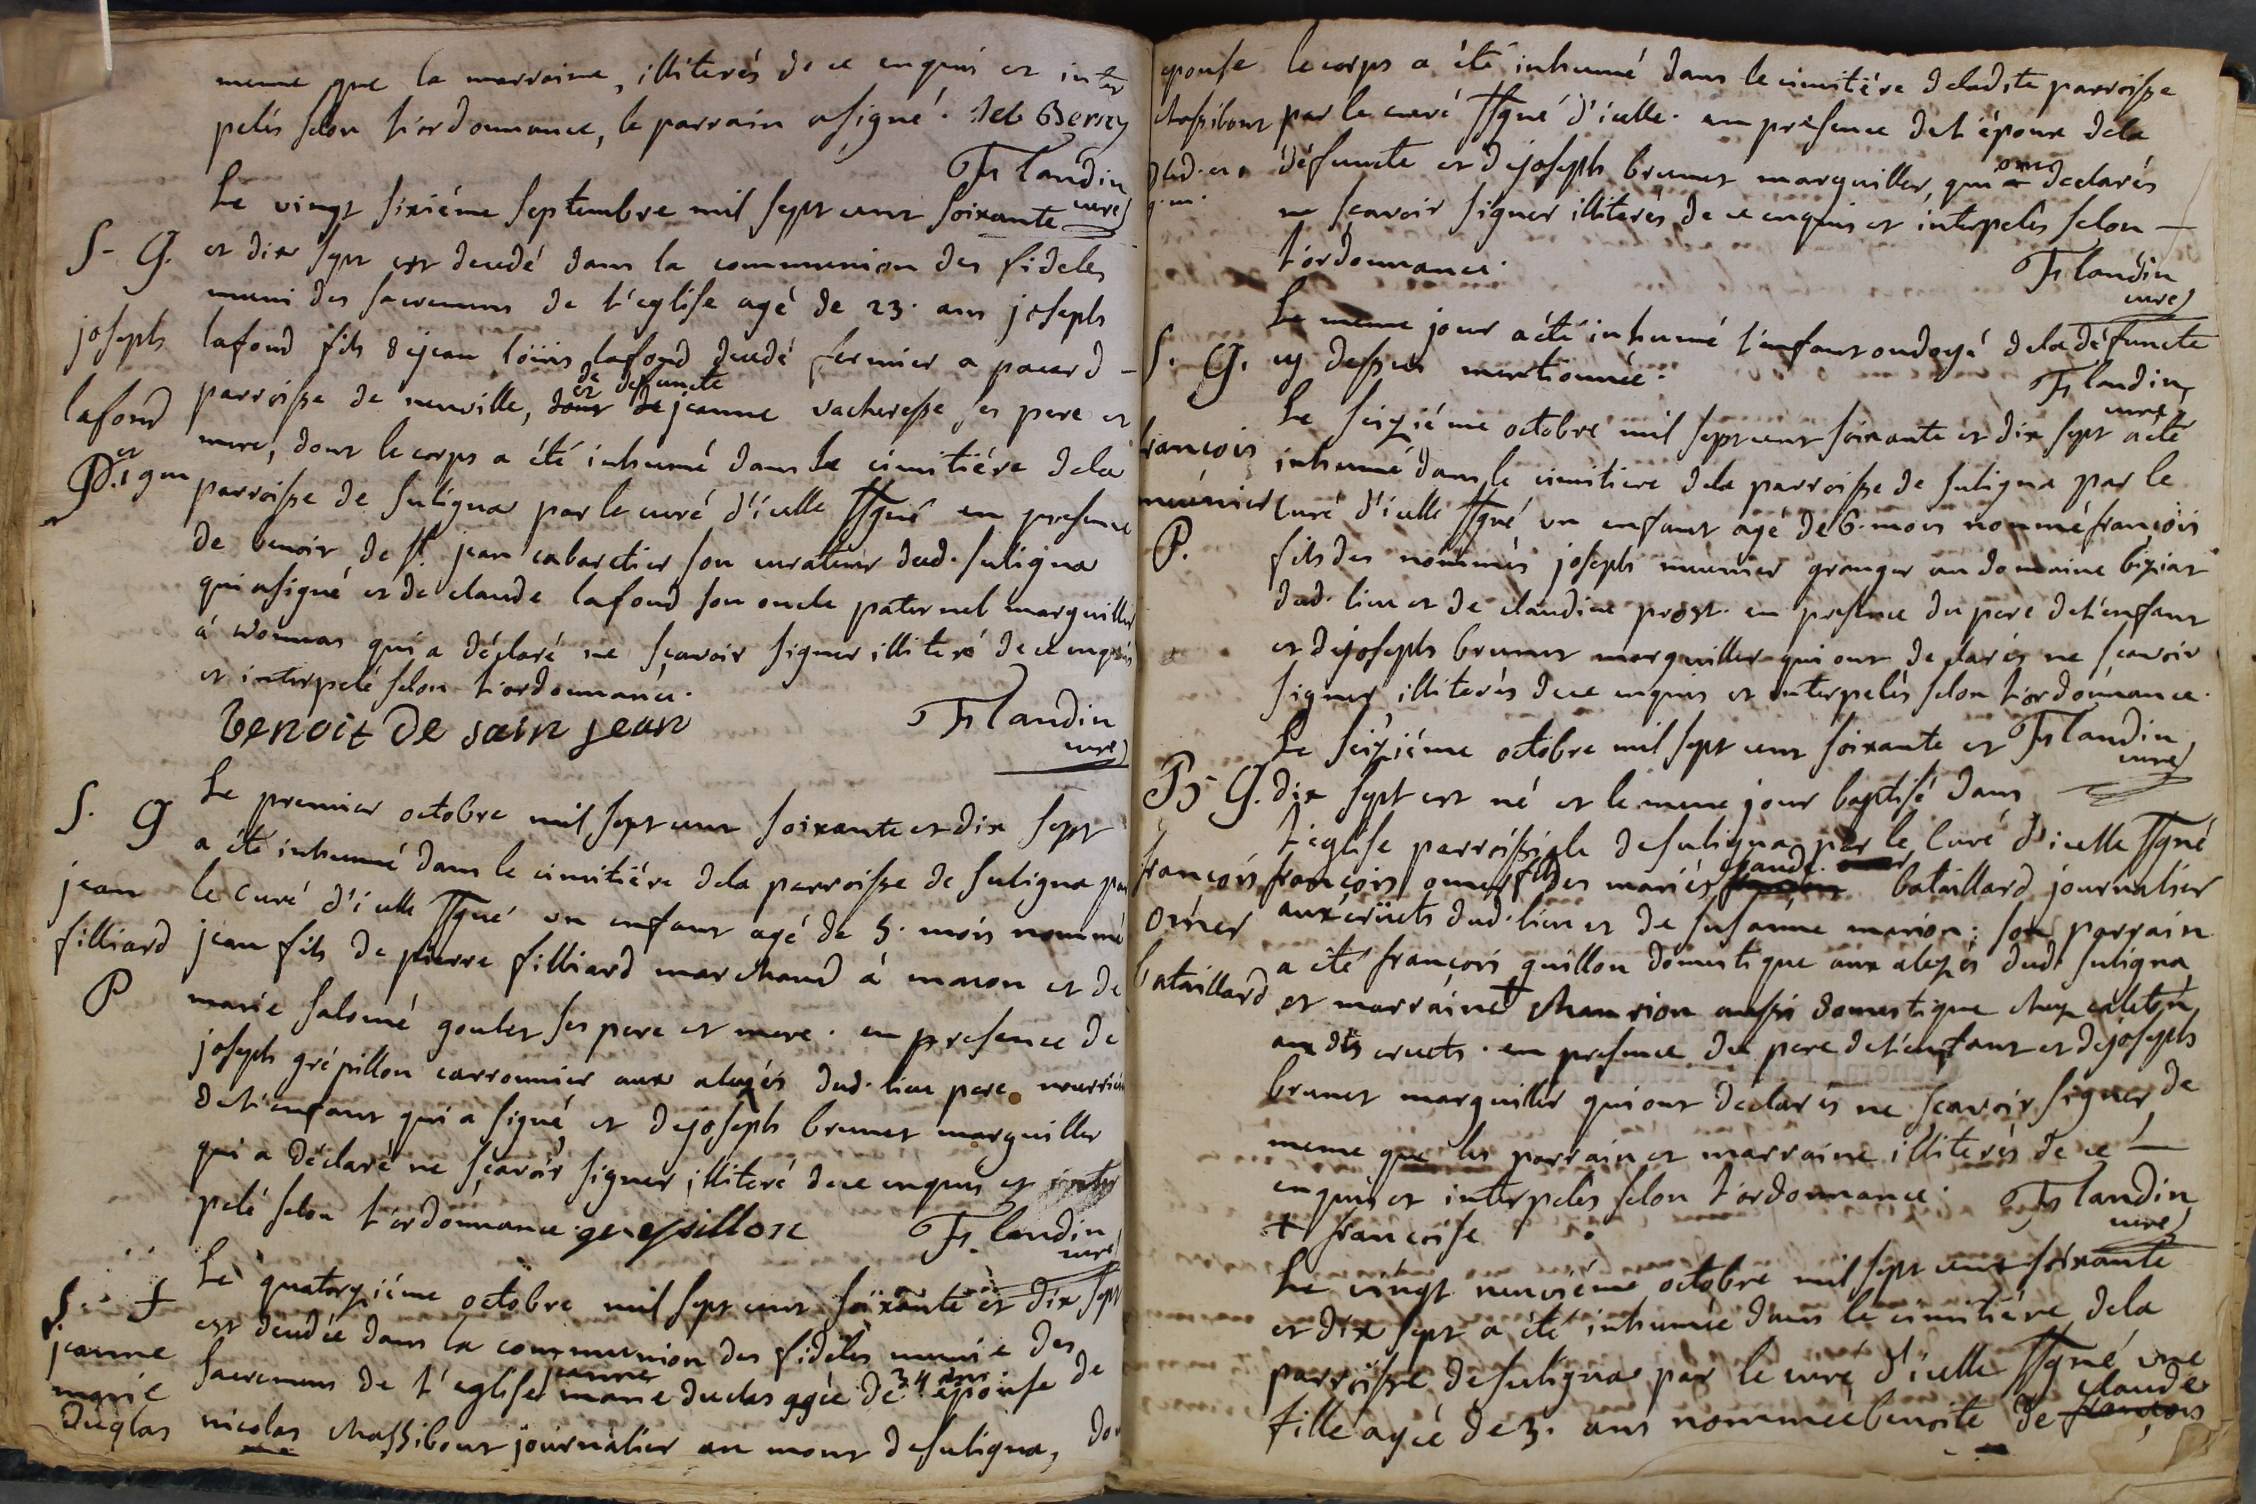 meme que la marraine, illiterés de ce enquis et inter
pelés selon l'ordonnance, le parrain a signé.
Flandin
curé
Le vingt sixiéme septembre mil sept cent soixante
S. G.
et dix sept est decedé dans la communion des fideles
muni des sacremens de l'eglise agé de 23. ans joseph
joseph
lafond fils de jean loüis lafond decedé fermier a
lafond
de defuncte
parroisse de neuville, et jeanne vacheresse ses pere et
mere, dont le corps a été inhumé dans le cimitiére dela
parroisse de suligna par le curé d'icelle ssgné en presence
de benoit de st. jean cabaretier son curateur dud. suligna
qui a signé et de claude lafond son oncle paternel marguiller
á vonnas qui a déclaré ne sçavoir signer illiteré de ce enquis
et interpelé selon l'ordonnance.
benoit de sain jean
Flandin
curé
Le premier octobre mil sept cent soixante et dix sept
S. G
a été inhumé dans le cimitiére dela parroisse de suligna par
jean
le curé d'icelle ssgné un enfant agé de 5. mois nommé
filliard
jean fils de pierre filliard marchand á macon et de
P
marie salomé goulet ses pere et mere. en presence de
joseph grépillon carronnier aux alezés dud. lieu pere nourricier
de l'enfant qui a signé et de joseph brunet marguiller
qui a déclaré ne sçavoir signer illiteré de ce enquis et inter
pelé selon l'ordonnance.
Flandin
curé
Le quatorziéme octobre mil sept cent soixante et dix sept
S.
est decedée dans la communion des fideles munie des
jeanne
jeanne
34 ans
sacremens de l'eglise marie duclas agée de épouse de
marie
duclas
nicolas chassibout journalier au mont de suligna, dont
epouse
le corps a été inhumé dans le cimitiére deladite parroisse
chassibout
par le curé ssgné d'icelle. en présence de l'époux dela
défuncte et de joseph brunet marguiller, qui ont declarés
ne sçavoir signer illiterés de ce enquis et interpelés selon
l'ordonnance.
Flandin
curé
Le meme jour a été inhumé l'enfant ondoyé dela défuncte
S. G.
cy dessus mentionnée.
Flandin
curé
Le seiziéme octobre mil sept cent soixante et dix sept a été
françois
inhumé dans le cimitiere dela parroisse de suligna par le
meunier
curé d'icelle ssgné un enfant agé de 6. mois nommé françois
P.
fils des nommés joseph meunier granger au domaine biziat
dud. lieu et de claudine prost. en presence du pere de l'enfant
et de joseph brunet marguiller qui ont declarés ne sçavoir
signer illiterés de ce enquis et interpelés selon l'ordonnance.
Flandin
curé
Le seiziéme octobre mil sept cent soixante et
B. G.
dix sept est né et le meme jour baptisé dans
l'eglise parroissiale de suligna par le curé d'icelle ssgné
françois
claude
françois omer fils des mariés bataillard journalier
omer
aux dud. lieu et de susanne marion; son parrain
bataillard
a été françois guillon domestique aux alezés dud. suligna
et marraine + chamrion aussi domestique chez
aux dts. en presence du pere de l'enfant et de joseph
brunet marguiller qui ont declarés ne sçavoir signer, de
meme que les parrain et marraine illiterés de ce
enquis et interpelés selon l'ordonnance.
Flandin
curé
+ françoise
Le vingt neuviéme octobre mil sept cent soixante
et dix sept a été inhumée dans le cimitiére dela
parroisse de suligna par le curé d'icelle ssgné une
claude
fille agée de 3. ans nommée benoite de françois